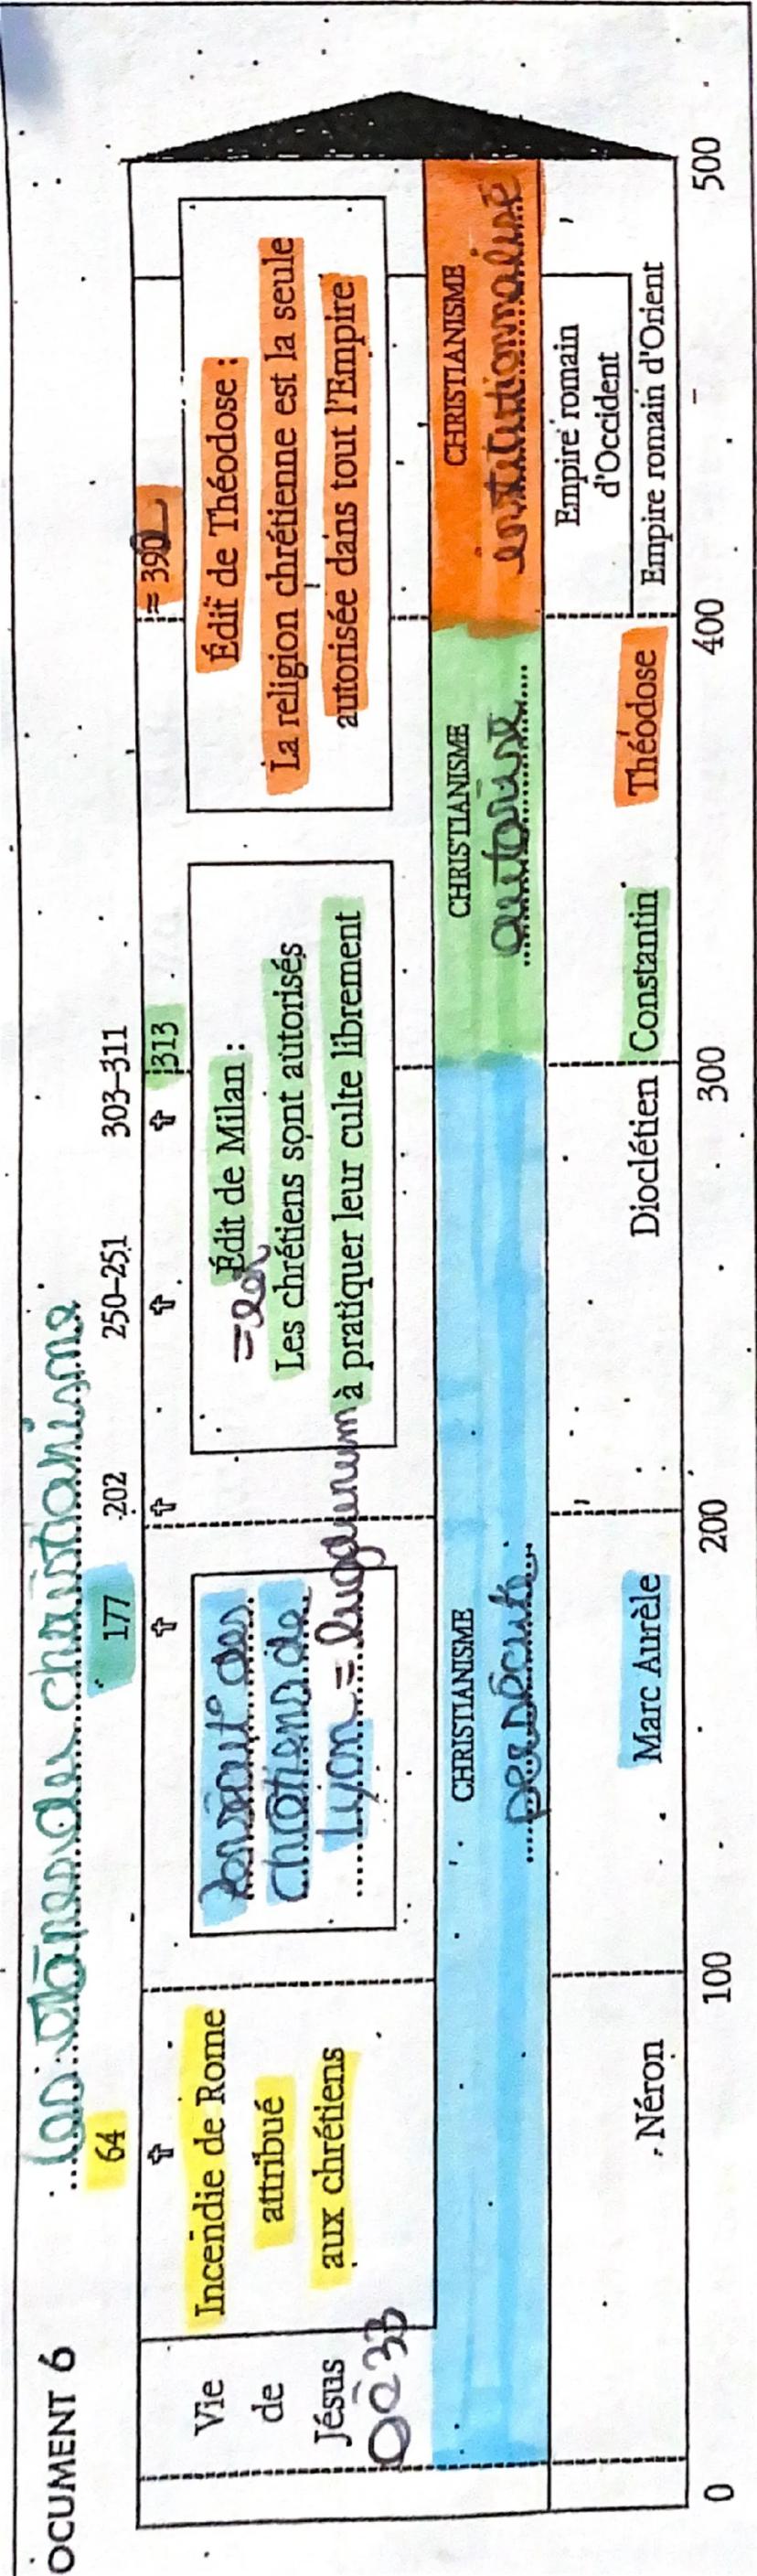 OCUMENT 6
Les étapes du christianisme
64
177
202
250–251
303–311
313
= 392
Vie
de
Jésus
0 à 33
Incendie de Rome
attribué
aux chrétiens
des
chrétiens de
Lyon = Lugdunum
Édit de Milan :
= loi
Les chrétiens sont autorisés
à pratiquer leur culte librement
Édit de Théodose :
La religion chrétienne est la seule
autorisée dans tout l'Empire
CHRISTIANISME
persécuté
CHRISTIANISME
autorisé
CHRISTIANISME
institutionnalisé
Néron
Marc Aurèle
Dioclétien
Constantin
Théodose
Empire romain
d'Occident
Empire romain d'Orient
0
100
200
300
400
500